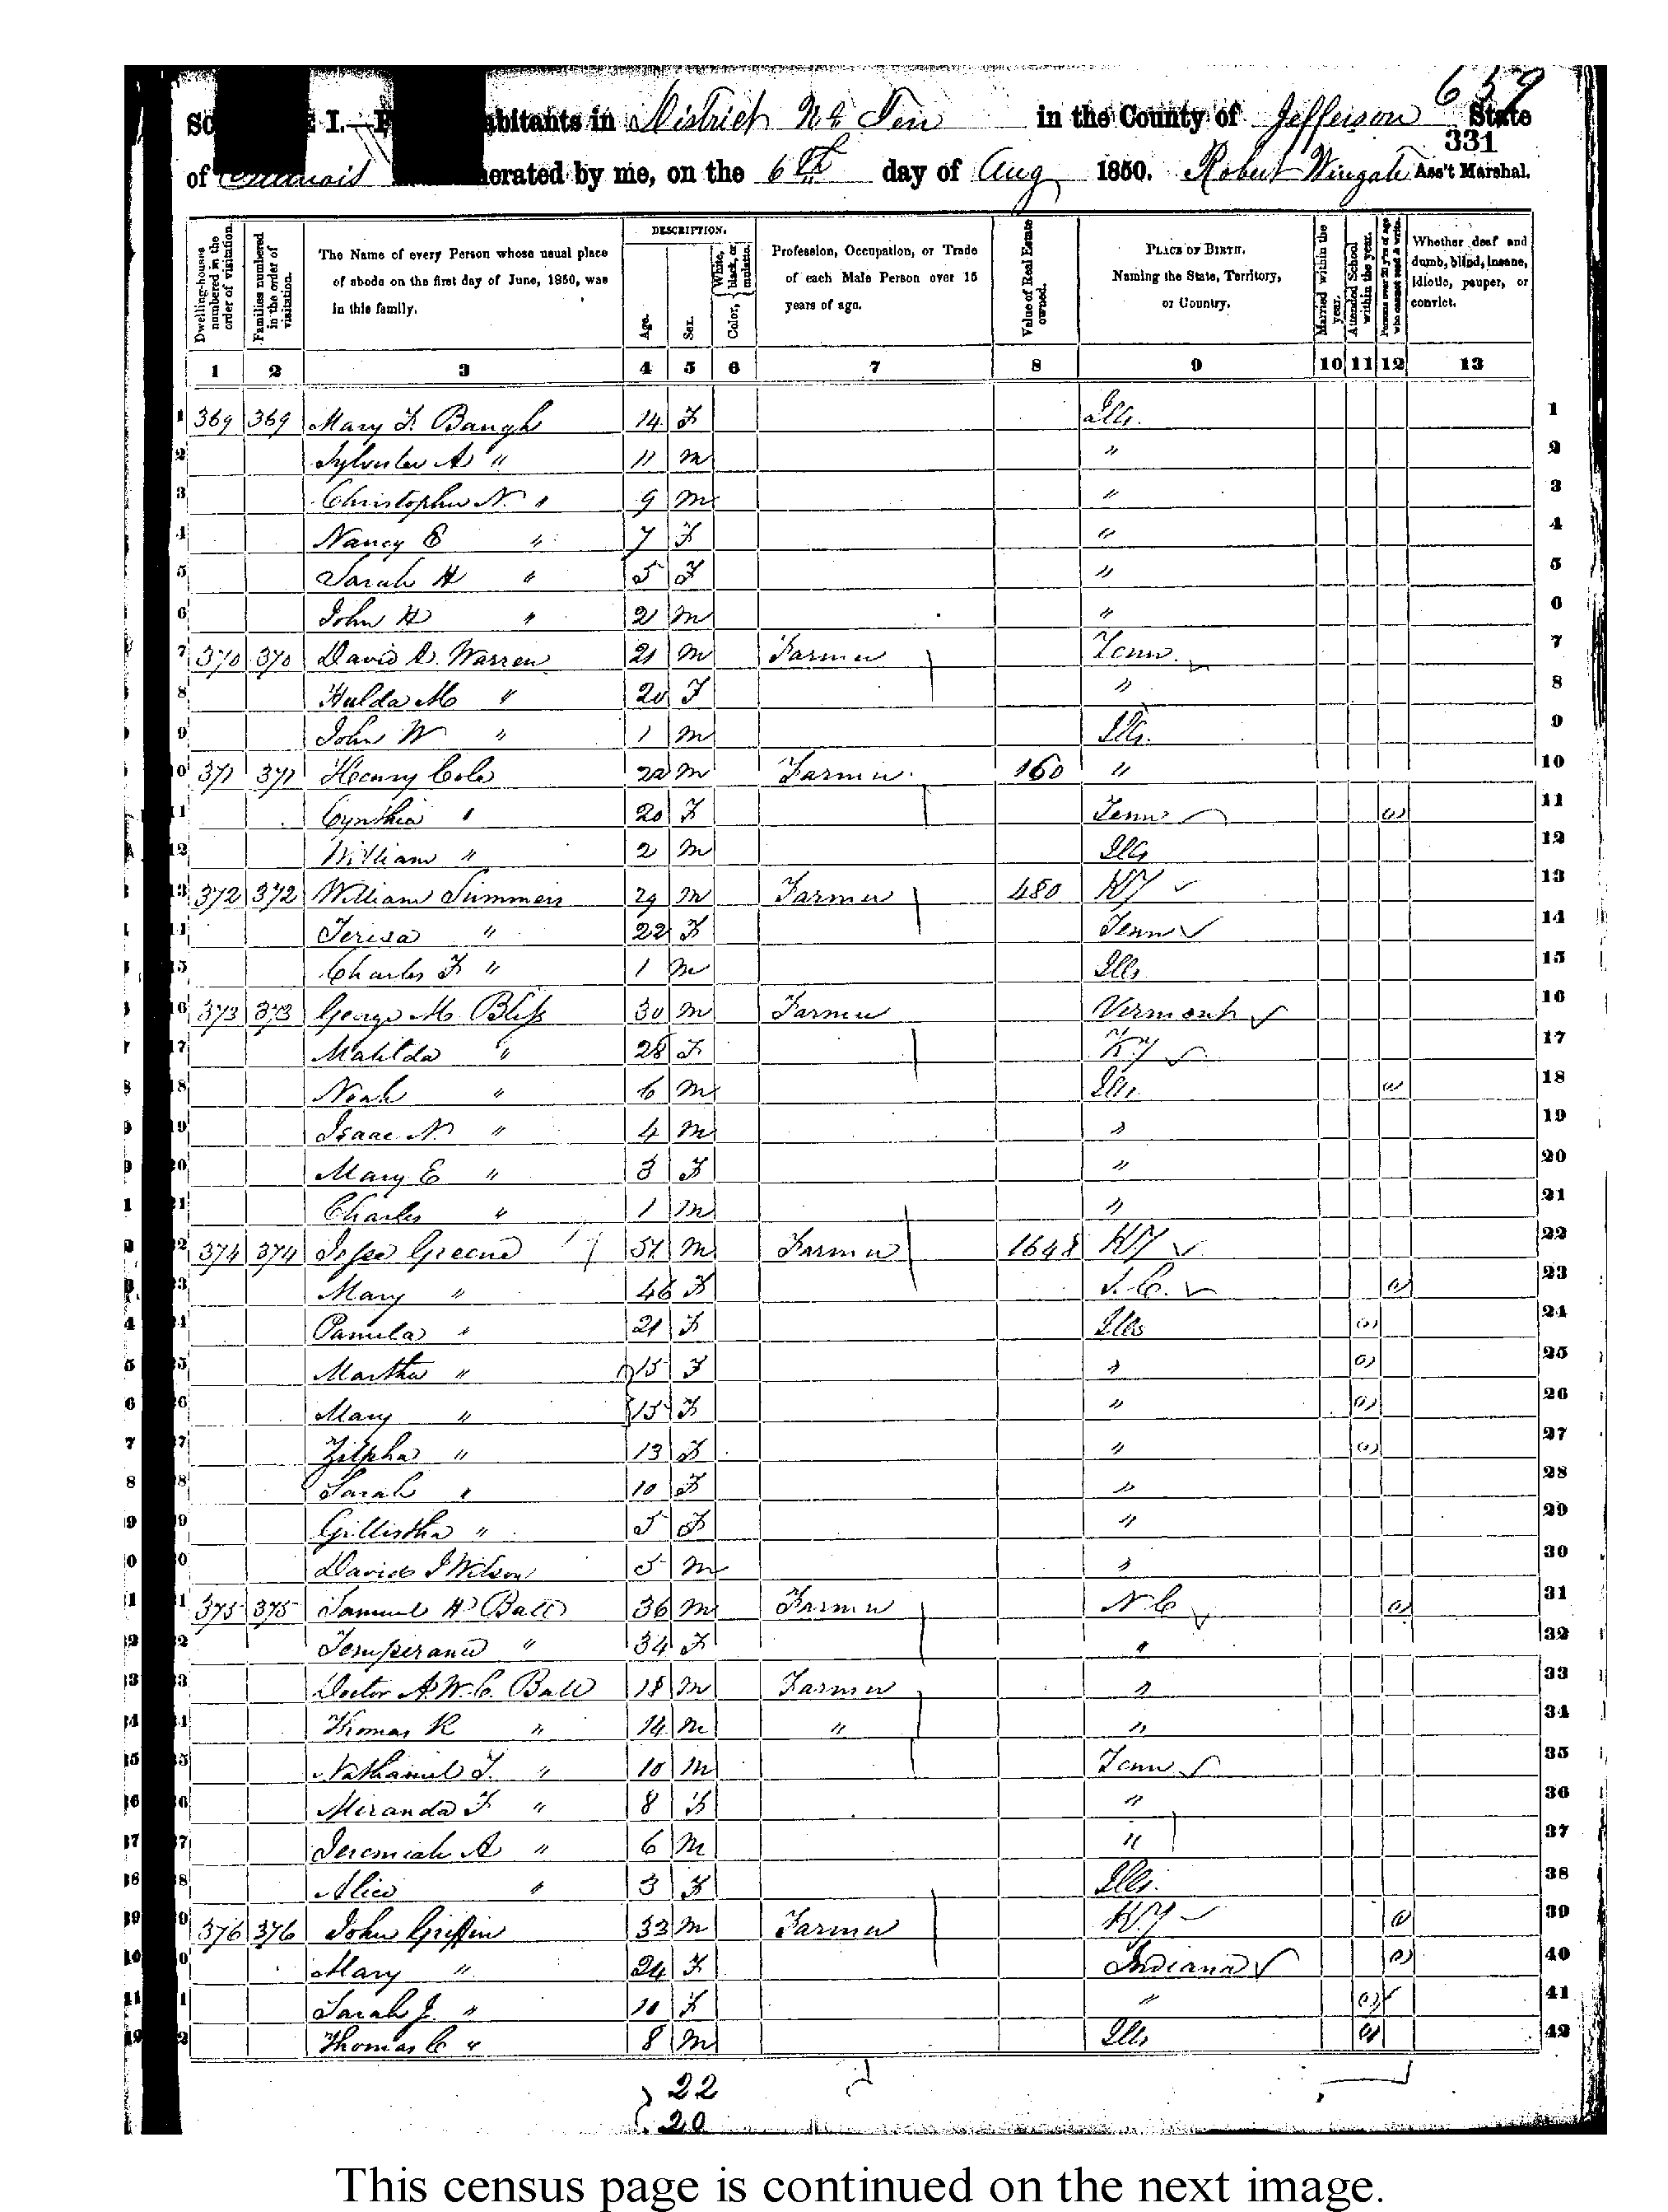 659
I.— abitants in District No Ten in the County of Jefferson State
331
of Illinois erated by me, on the 6th day of Aug 1850. Robert Wingate Ass't Marshal.
Dwelling-houses numbered in the order of visitation.
Families numbered in the order of visitation.
The Name of every Person whose usual place of abode on the first day of June, 1850, was in this family.
DESCRIPTION.
Age.
Sex.
Color, White, black, or mulatto.
Profession, Occupation, or Trade of each Male Person over 15 years of age.
Value of Real Estate owned.
PLACE OF BIRTH. Naming the State, Territory, or Country.
Married within the year.
Attended School within the year.
Persons over 20 y'rs of age who cannot read & write.
Whether deaf and dumb, blind, insane, idiotic, pauper, or convict.
1 2 3 4 5 6 7 8 9 10 11 12 13
1 369 369 Mary F. Baugh 14 F Ills. 1
2 Sylvester A " 11 M " 2
3 Christopher N. " 9 M " 3
4 Nancy E " 7 F " 4
5 Sarah H " 5 F " 5
6 John H " 2 M " 6
7 370 370 David A. Warren 21 M Farmer Tenn. 7
8 Hulda M " 20 F " 8
9 John W " 1 M Ills. 9
10 371 371 Henry Cole 22 M Farmer 160 " 10
11 Cynthia " 20 F Tenn 11
12 William " 2 M Ills 12
13 372 372 William Summers 29 M Farmer 480 KY 13
14 Teresa " 22 F Tenn 14
15 Charles F " 1 M Ills 15
16 373 373 George M Bliss 30 M Farmer Vermont 16
17 Matilda " 28 F KY 17
18 Noah " 6 M Ills. 18
19 Isaac N. " 4 M " 19
20 Mary E " 3 F " 20
21 Charles " 1 M " 21
22 374 374 Jesse Greene 51 M Farmer 1648 KY 22
23 Mary " 46 F S. C. 23
24 Pamela " 21 F Ills 24
25 Martha " 15 F " 25
26 Mary " 15 F " 26
27 Zilpha " 13 F " 27
28 Sarah " 10 F " 28
29 Gillistha " 5 F " 29
30 David J Wilson 5 M " 30
31 375 375 Samuel H Ball 36 M Farmer N C 31
32 Temperance " 34 F " 32
33 Doctor A. W. C. Ball 18 M Farmer " 33
34 Thomas R " 14 M " " 34
35 Nathaniel T. " 10 M Tenn 35
36 Miranda F " 8 F " 36
37 Jeremiah A " 6 M " 37
38 Alice " 3 F Ills. 38
39 376 376 John Griffin 33 M Farmer KY 39
40 Mary " 24 F Indiana 40
41 Sarah J. " 10 F " 41
42 Thomas C " 8 M Ills 42
22
20
This census page is continued on the next image.